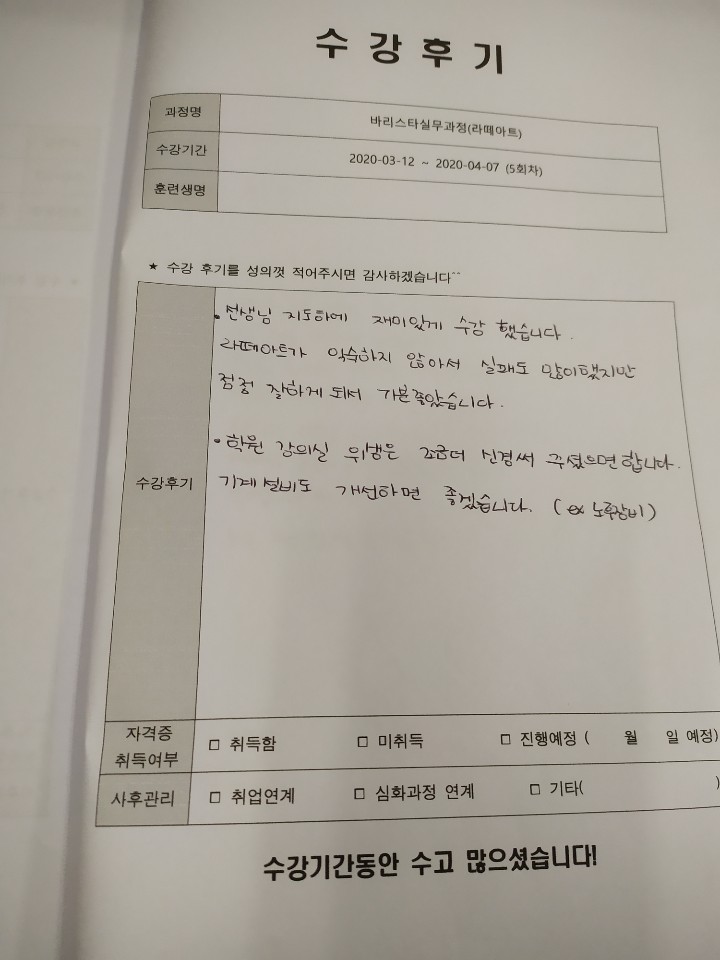 수 강 후 기
과정명 바리스타실무과정(라떼아트)
수강기간 2020-03-12 ~ 2020-04-07 (5회차)
훈련생명
★ 수강 후기를 성의껏 적어주시면 감사하겠습니다^^
• 선생님 지도하에 재미있게 수강 했습니다.
라떼아트가 익숙하지 않아서 실패도 많이했지만
점점 잘하게 되서 기분좋았습니다.
• 학원 강의실 위생은 조금더 신경써 주셨으면합니다.
수강후기
기계설비도 개선하면 좋겠습니다. (ex 노후장비)
자격증
취득여부
□ 취득함 □ 미취득 □ 진행예정 ( 월 일 예정)
사후관리 □ 취업연계 □ 심화과정 연계 □ 기타( )
수강기간동안 수고 많으셨습니다!